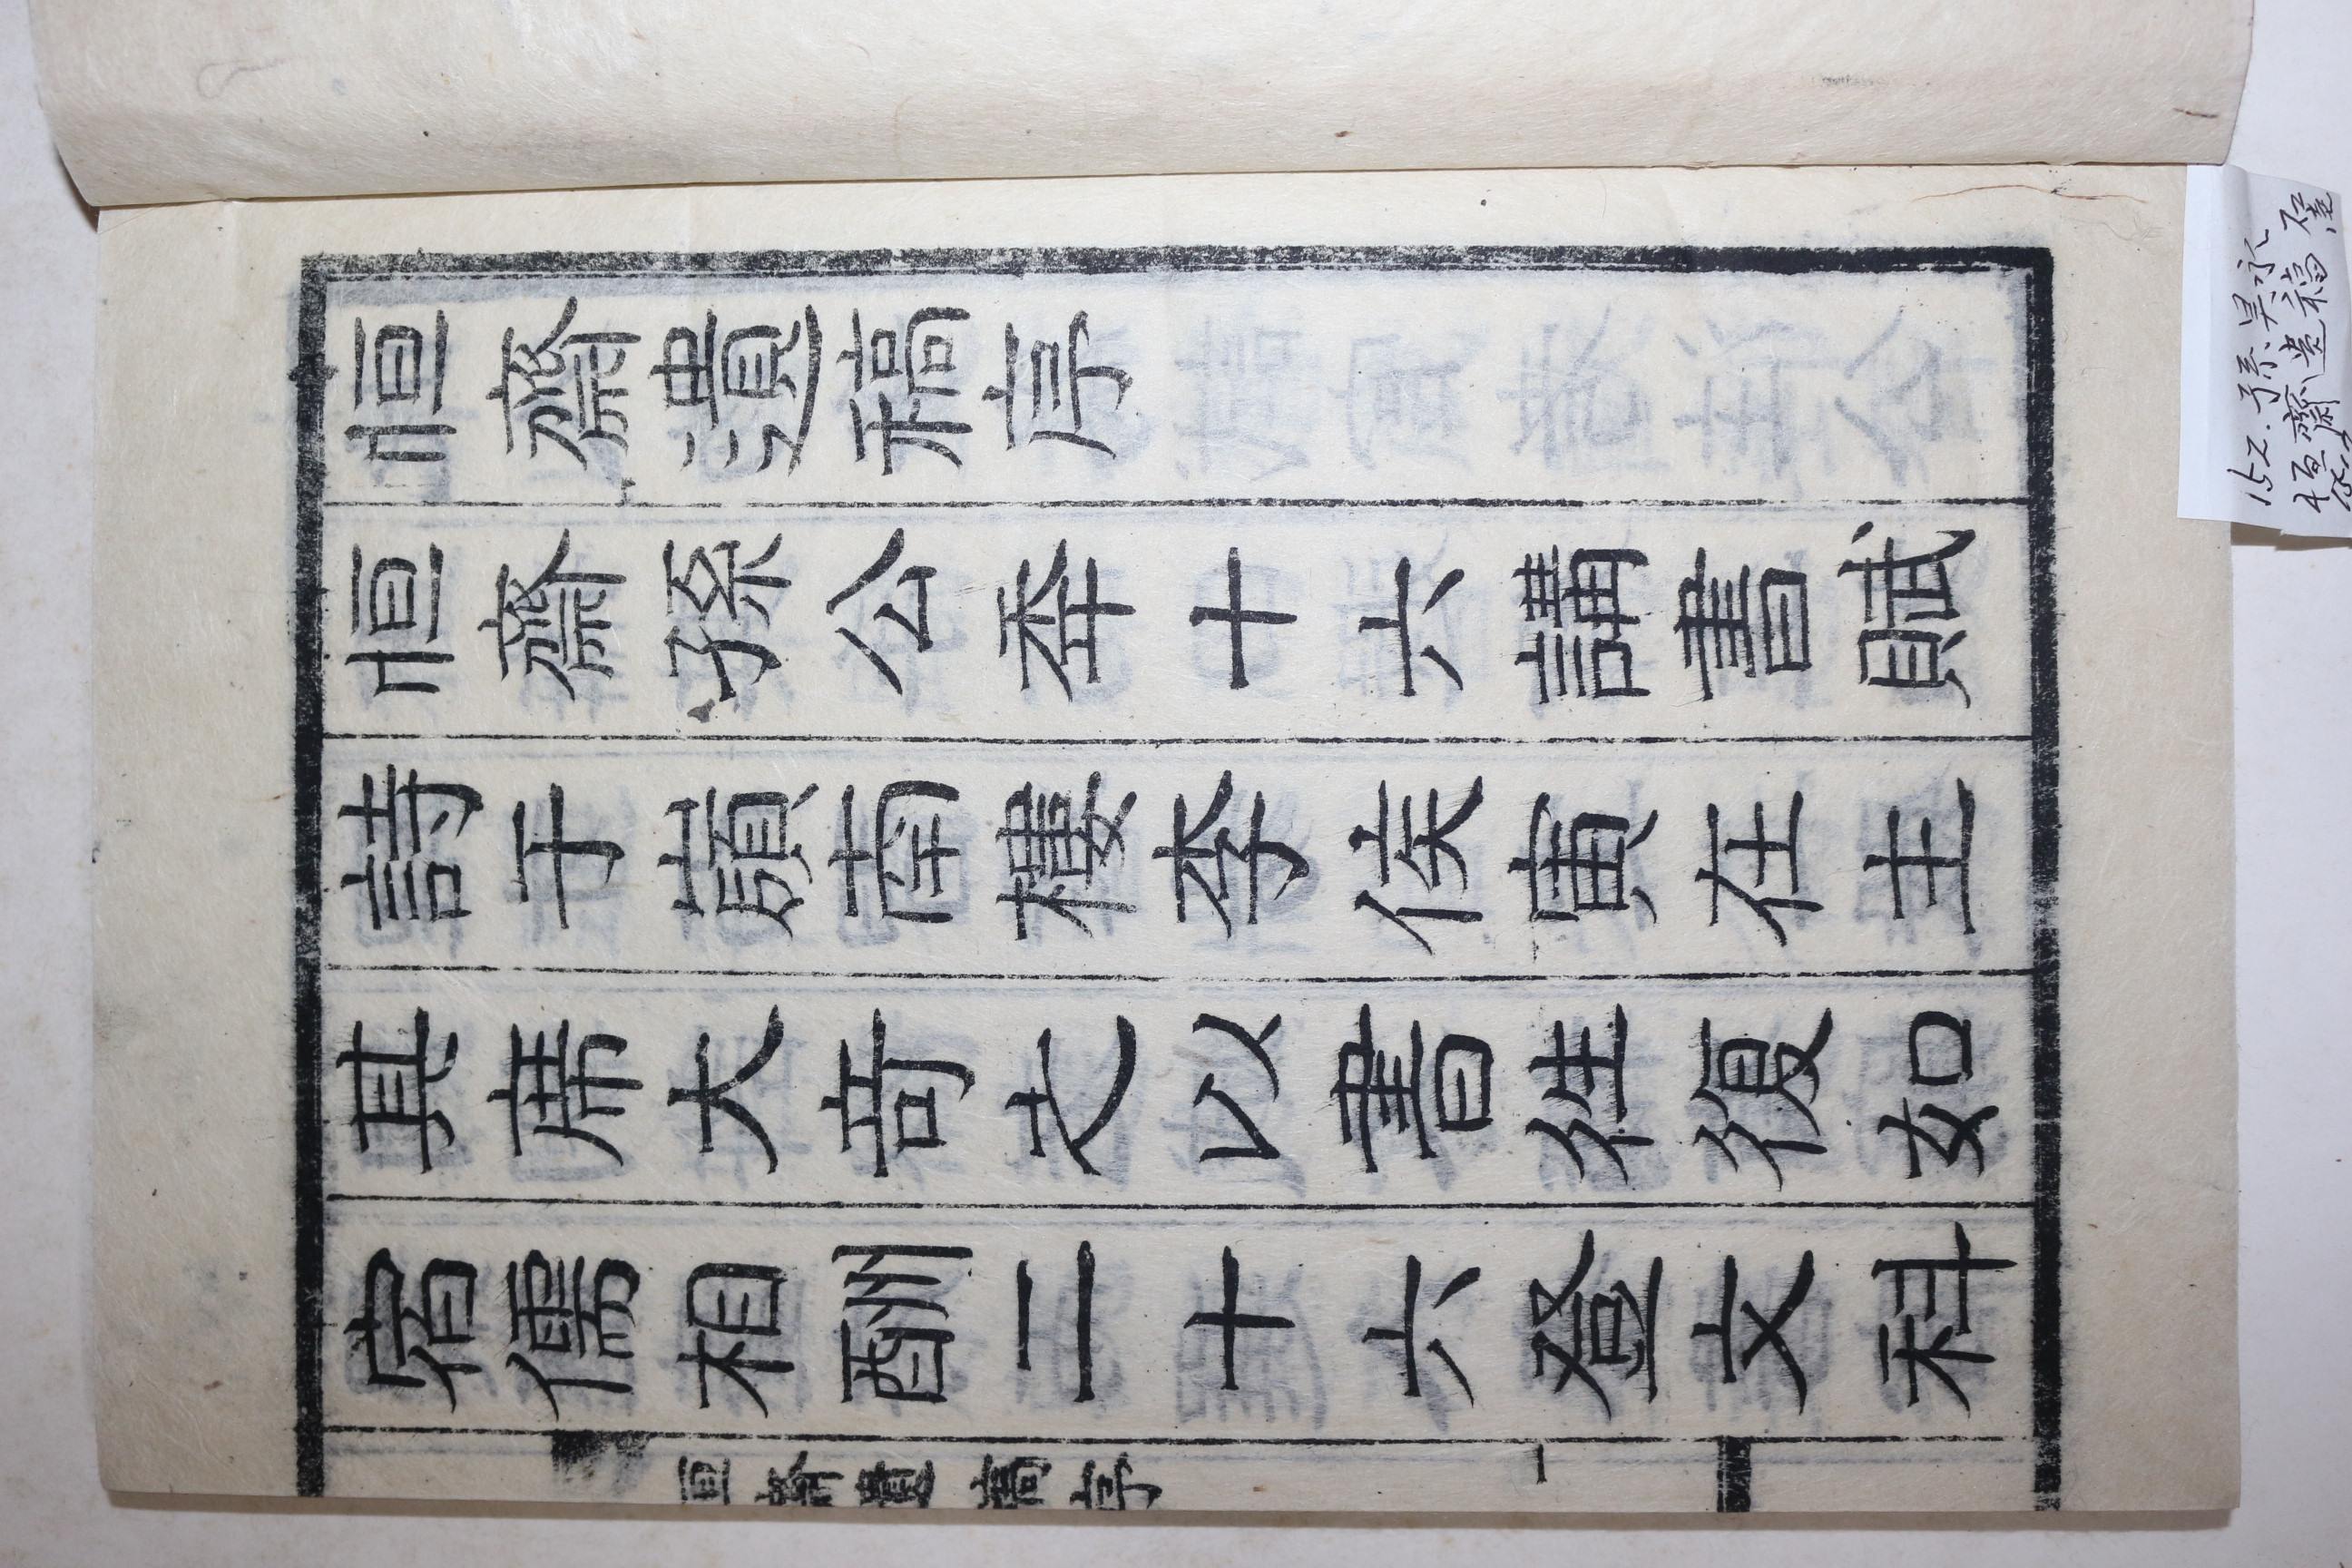 恒齋遺稿序
恒齋孫公秊十六講書賦
詩于嶺南樓李侯寅在主
其席大竒之以書徃復如
宿儒相酬二十六登文科
恒齋遺稿序
一
152.孫昊永
恒齋遺稿